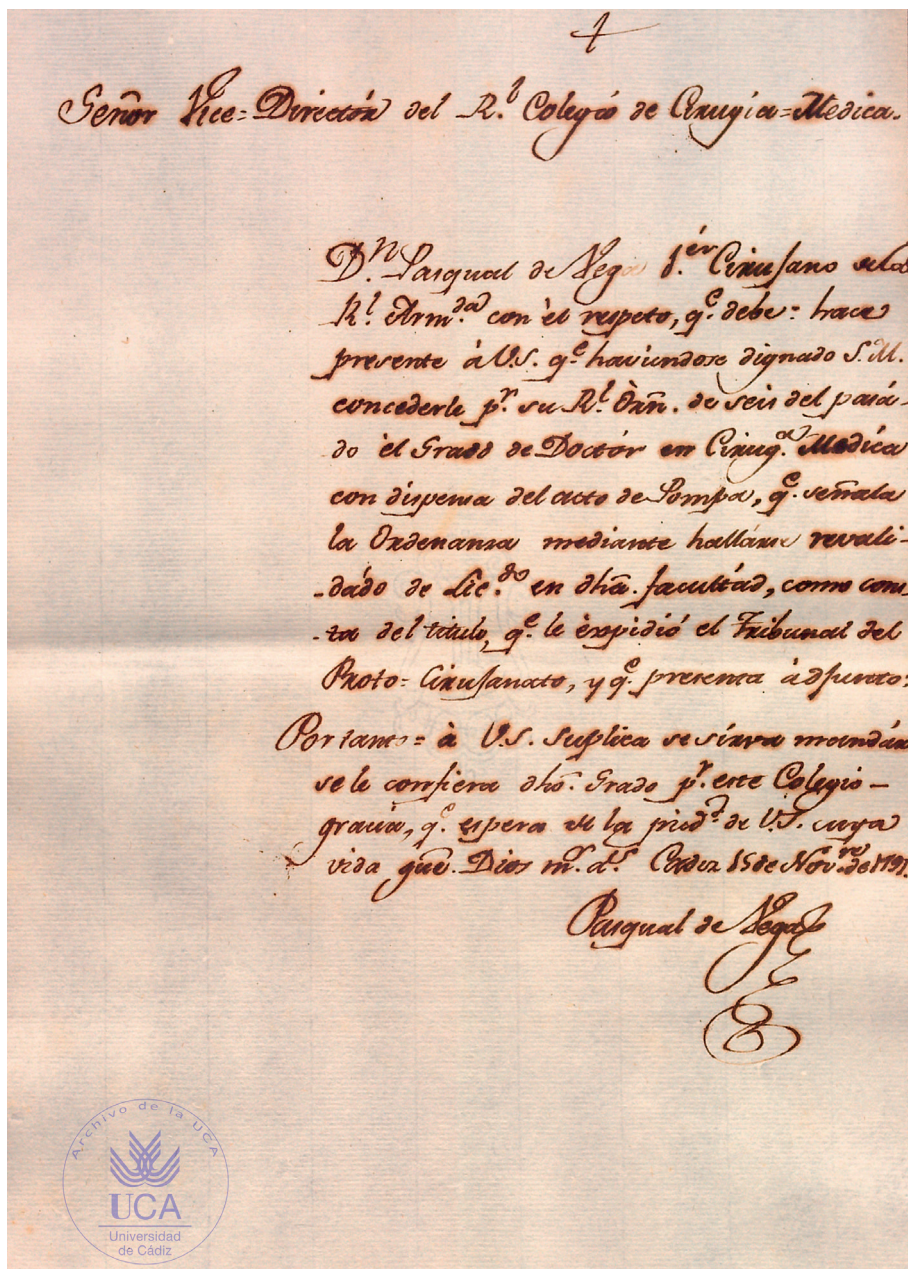 Señor Vice=Directór del R.l Colegio de Cirugía=Medica.
D.n Pasqual de Vega 1.ér Cirujano de la
R.l Arm.da con él respeto, q.e debe: hace
presente à V.S. q.e haviendose dignado S.M.
concederle p.r su R.l Orñ. de seis del pasá-
do él Grado de Doctór en Cirug.a Medíca
con dispensa del acto de Pompa, q.e señala
la Ordenanza mediante hallárse revali-
-dádo de Lic.do en dha. facultád, como cons-
-ta del titulo, q.e le éxpidió el Tribunal del
Proto=Cirujanato, y q.e presenta àdjunto:
Por tanto= à V.S. Suplica se sírva mandár
se le confiera dho. Grado p.r este Colegio -
gracia, q.e espera de la pied.d de V.S. cuya
vida güe. Dios m.s a.s Cadiz 15 de Nov.re de 1791.
Pasqual de Vega
Archivo de la UCA
UCA
Universidad
de Cádiz